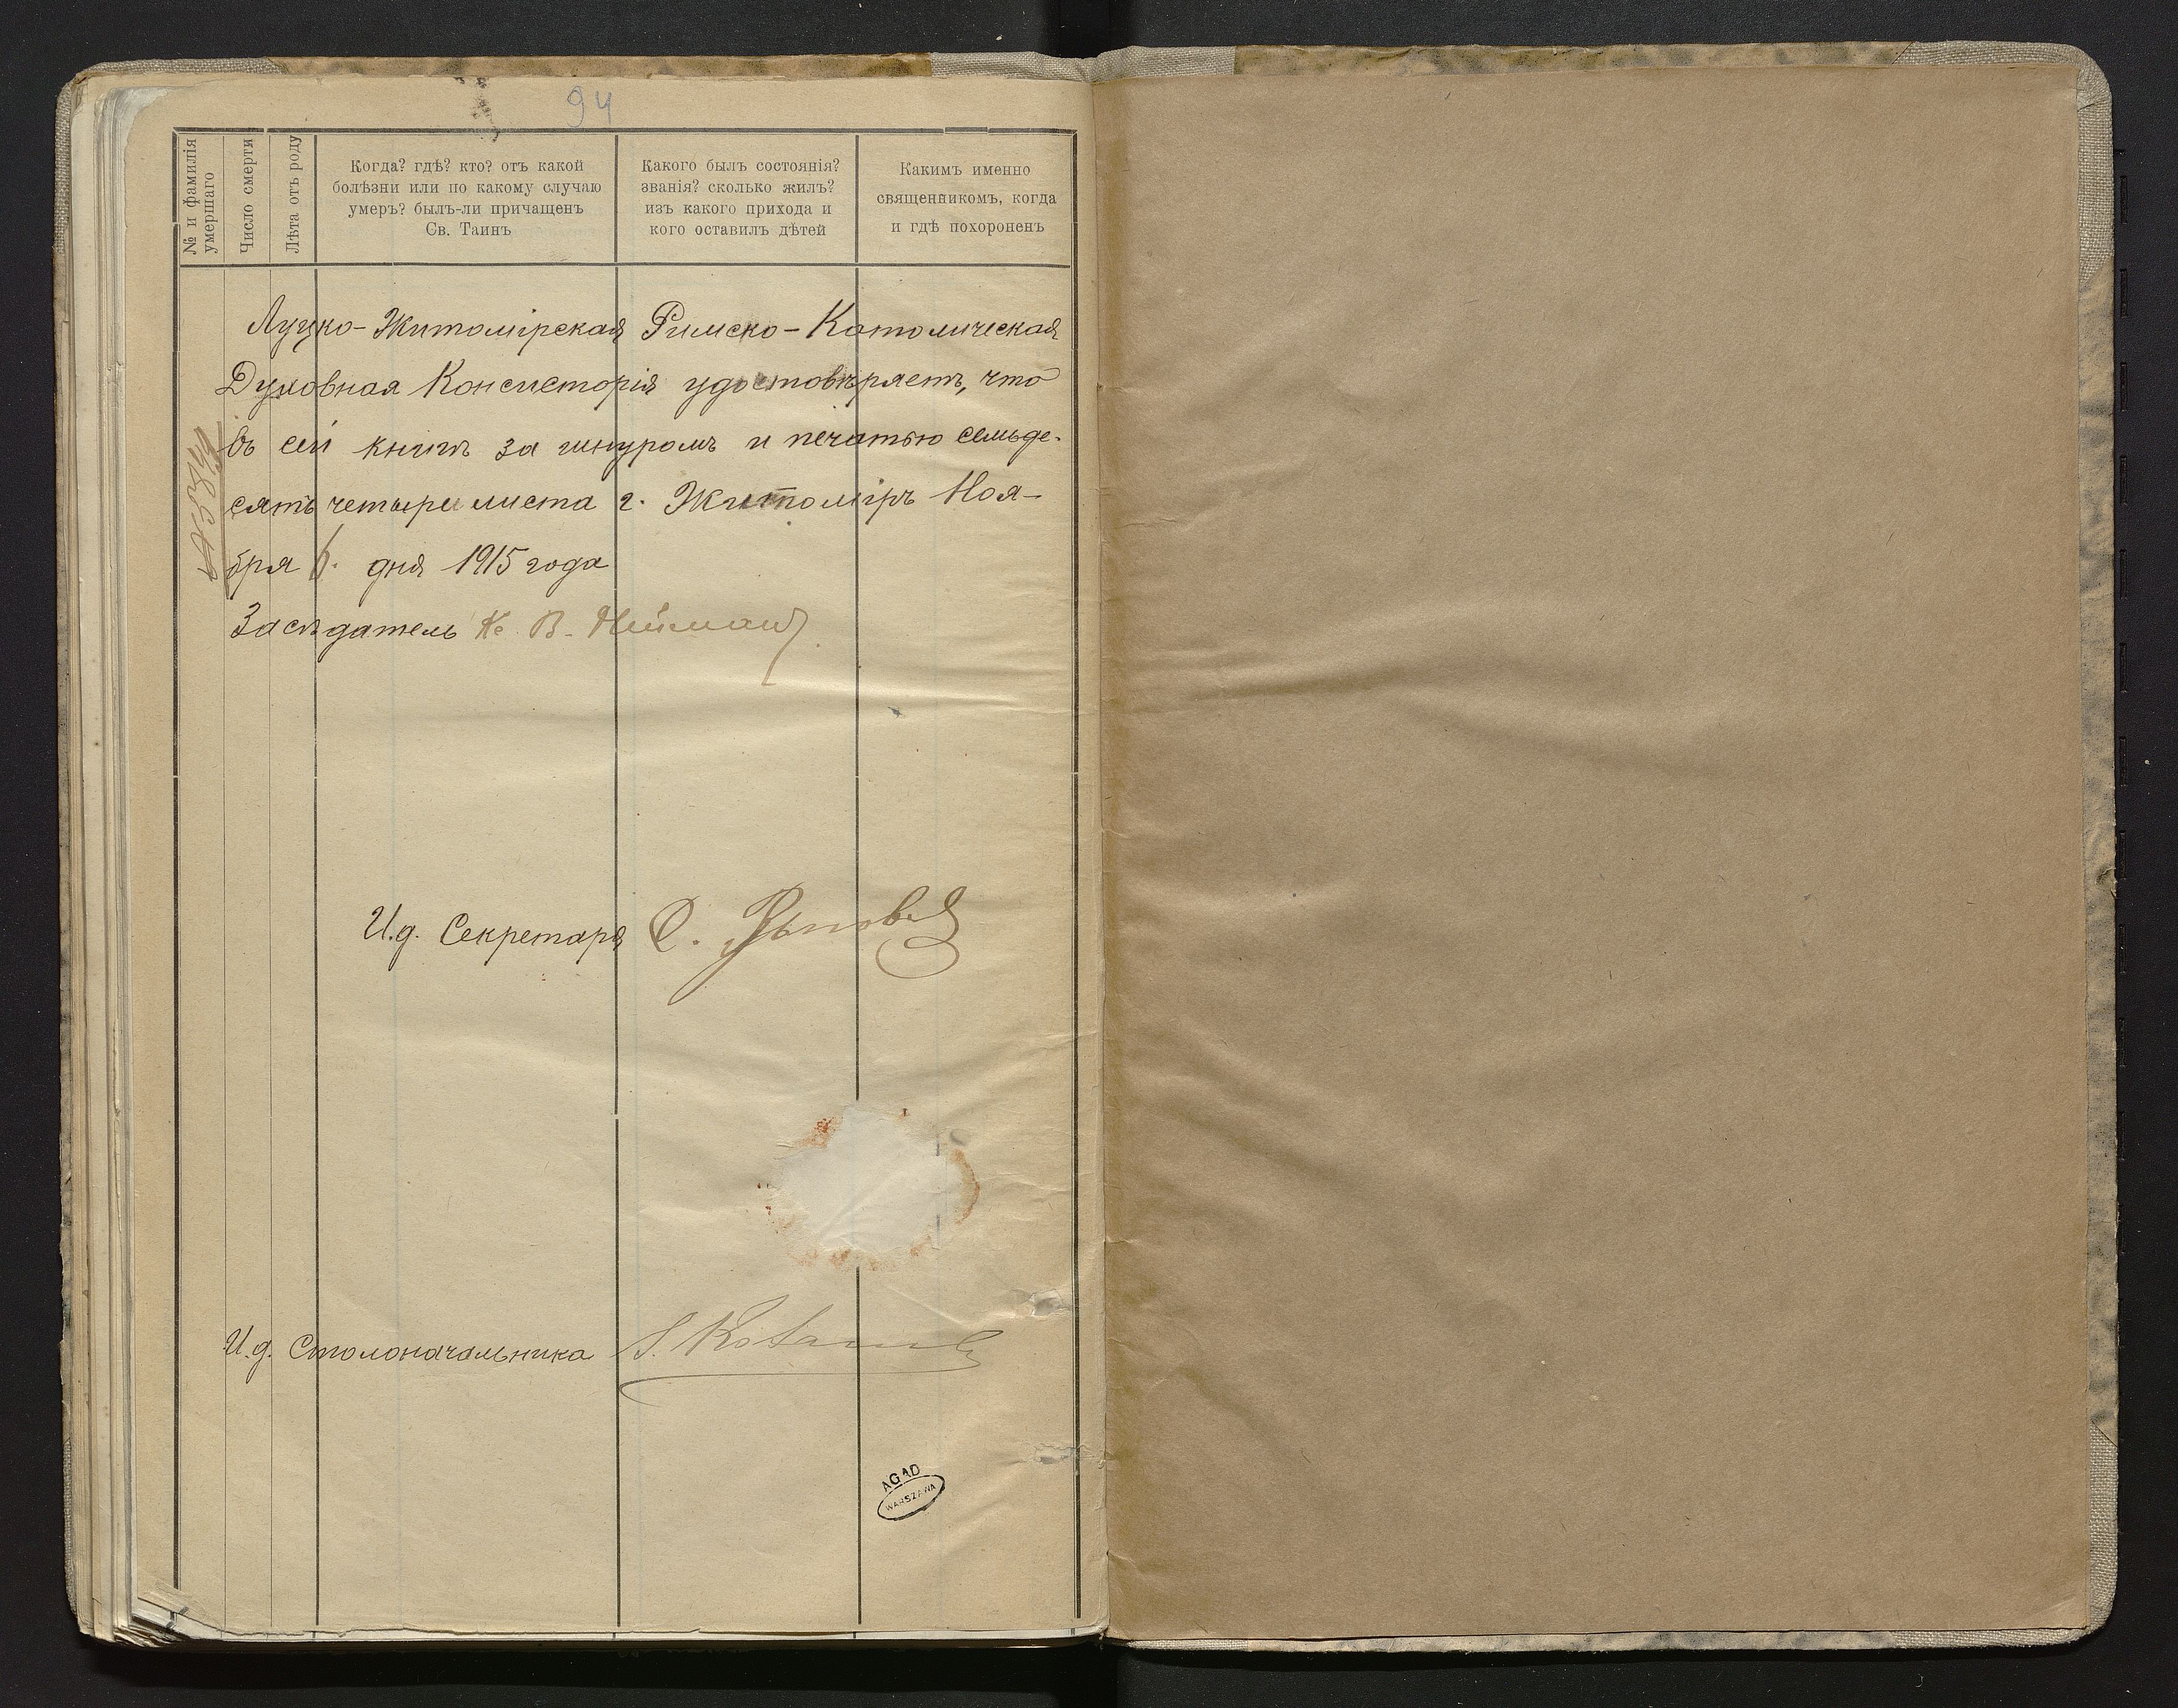 94
№ и фамилія
умершаго
Число смерти
Лѣта отъ роду
Когда? гдѣ? кто? отъ какой
болѣзни или по какому случаю
умеръ? былъ-ли причащенъ
Св. Таинъ
Какого былъ состоянія?
званія? сколько жилъ?
изъ какого прихода и
кого оставилъ дѣтей
Какимъ именно
священникомъ, когда
и гдѣ похороненъ
Луцко-Житомірская Римско-Католическая
Духовная Консисторія удостовѣряетъ, что
въ сей книгѣ за шнуромъ и печатью семьде-
сятъ четыре листа г. Житоміръ Ноя-
бря 6. дня 1915 года
Засѣдатель Кс. В. Нейманъ
И.д. Секретаря
И.д. Столоначальника
AGAD
WARSZAWA